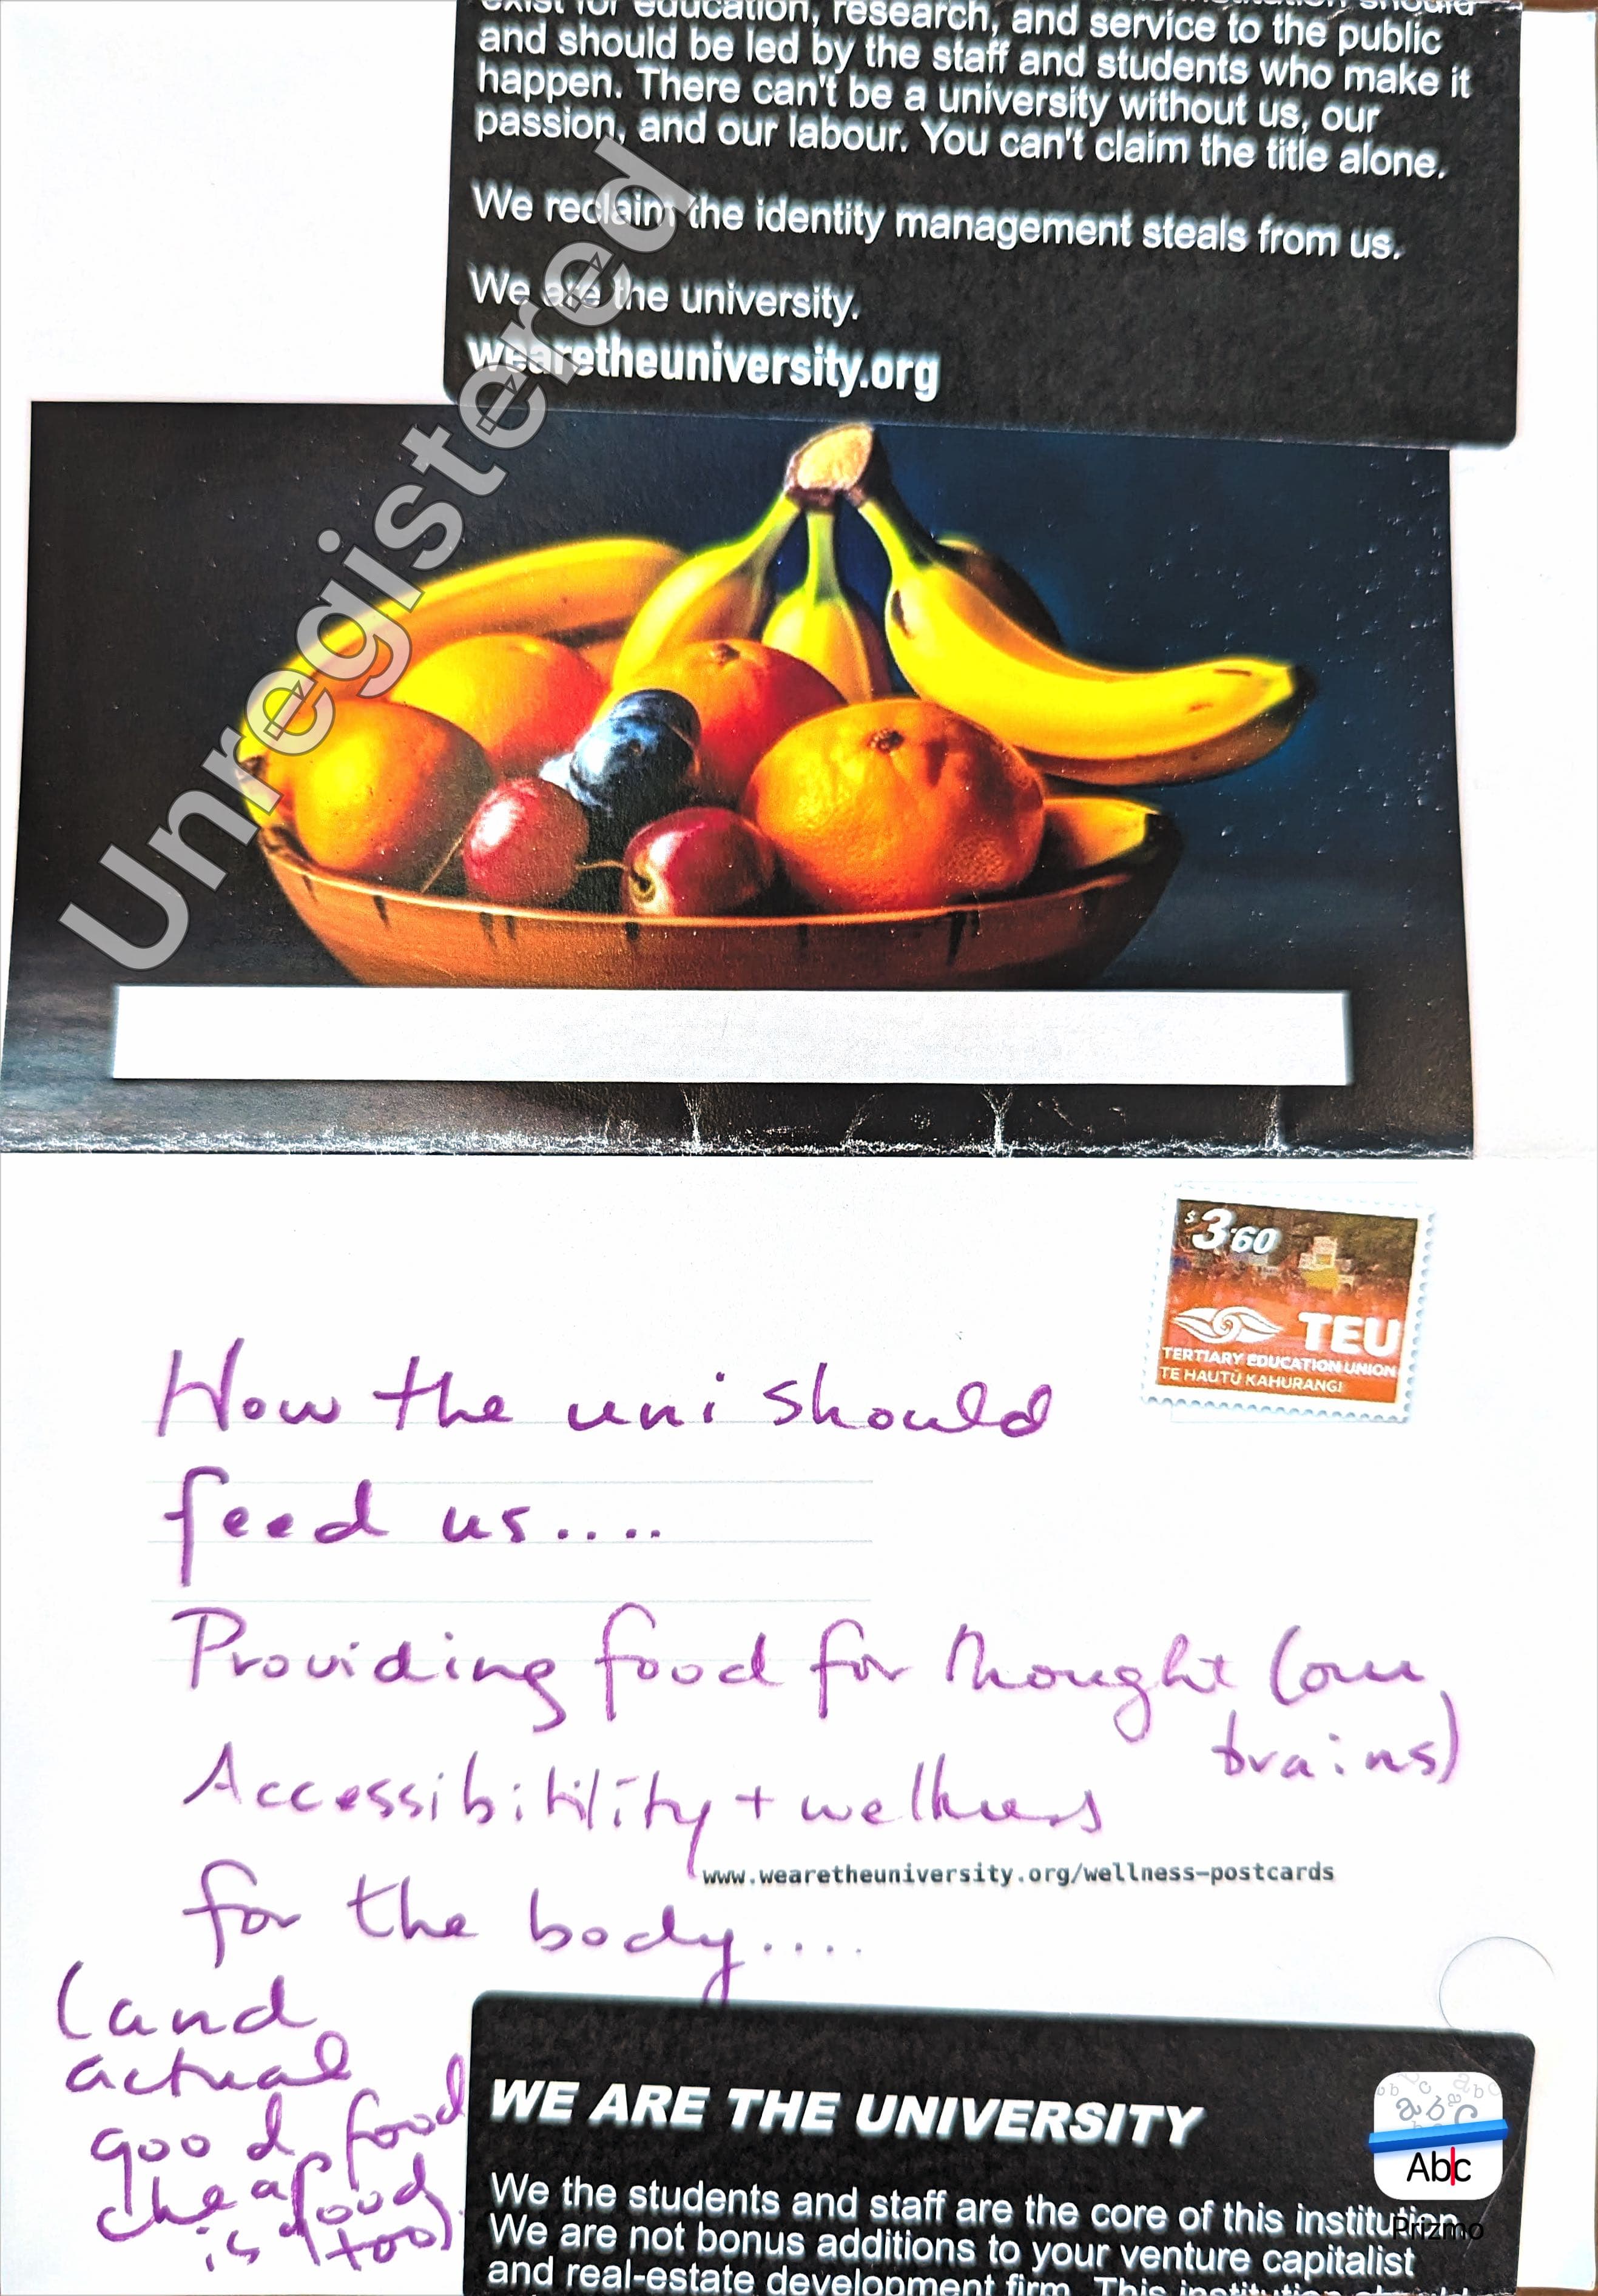 exist for education, research, and service to the public
and should be led by the staff and students who make it
happen. There can't be a university without us, our
passion, and our labour. You can't claim the title alone.
We reclaim the identity management steals from us.
We are the university.
wearetheuniversity.org
Unregistered
$3.60
TEU
TERTIARY EDUCATION UNION
TE HAUTŪ KAHURANGI
How the uni should
feed us....
Providing food for thought (our
brains)
Accessibitility + wellness
www.wearetheuniversity.org/wellness-postcards
for the body....
(and
actual
good food
cheap food
is too)
WE ARE THE UNIVERSITY
We the students and staff are the core of this institution.
We are not bonus additions to your venture capitalist
and real-estate development firm. This institution
abc
Abc
Prizmo